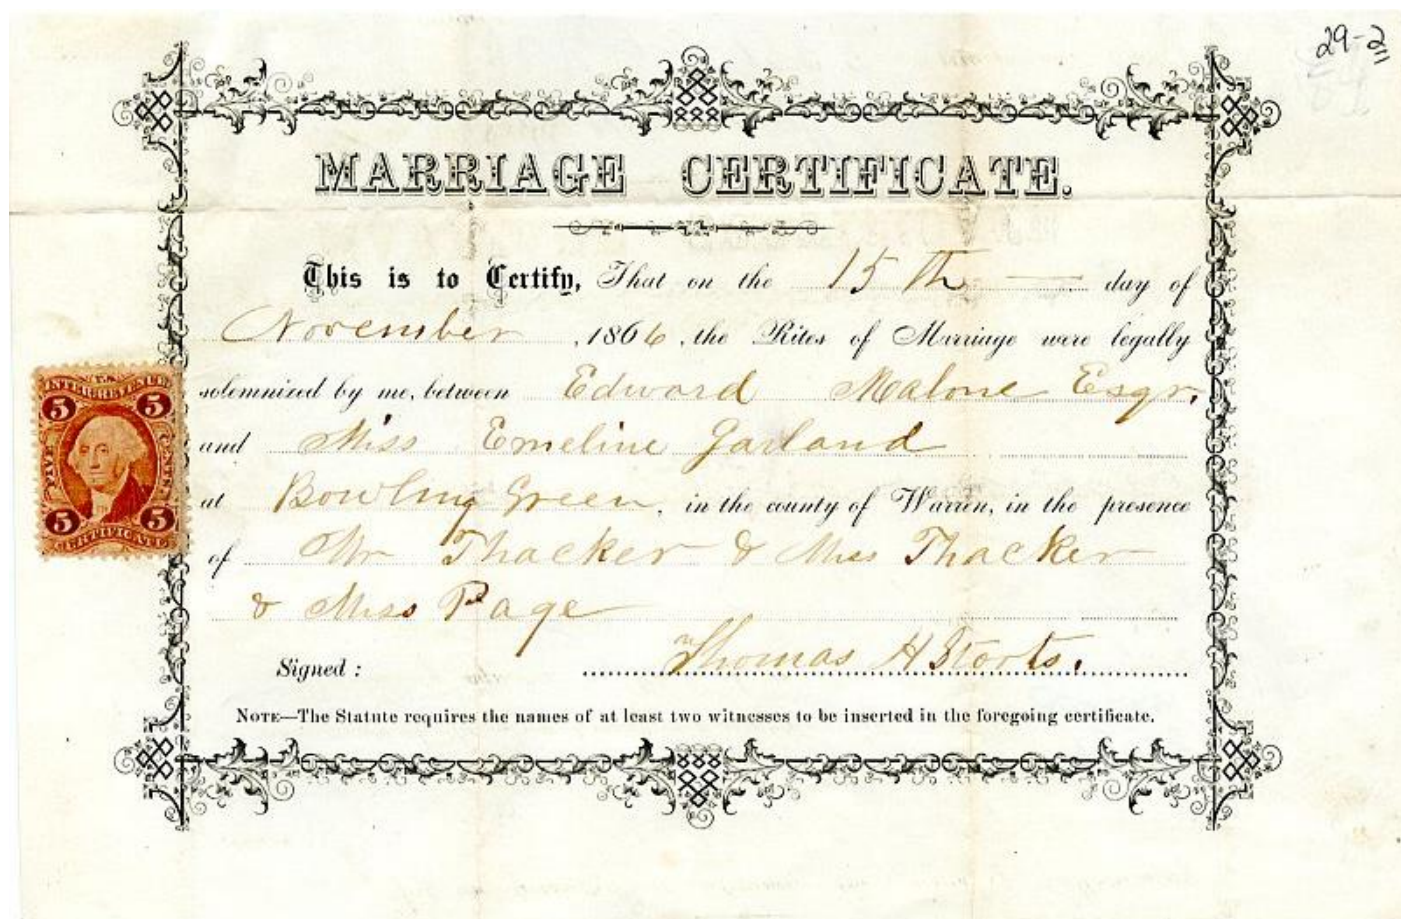 29-2
MARRIAGE CERTIFICATE.
This is to Certify, That on the 15th day of
November, 1866, the Rites of Marriage were legally
solemnized by me, between Edward Malone Esqr.
and Miss Emeline Garland
at Bowling Green, in the county of Warren, in the presence
of Mr Thacker & Miss Thacker
& Miss Page
Signed: Thomas H Storts.
NOTE—The Statute requires the names of at least two witnesses to be inserted in the foregoing certificate.
U.S.
INTER. REVENUE
5 5
FIVE CENTS
5 5
CERTIFICATE